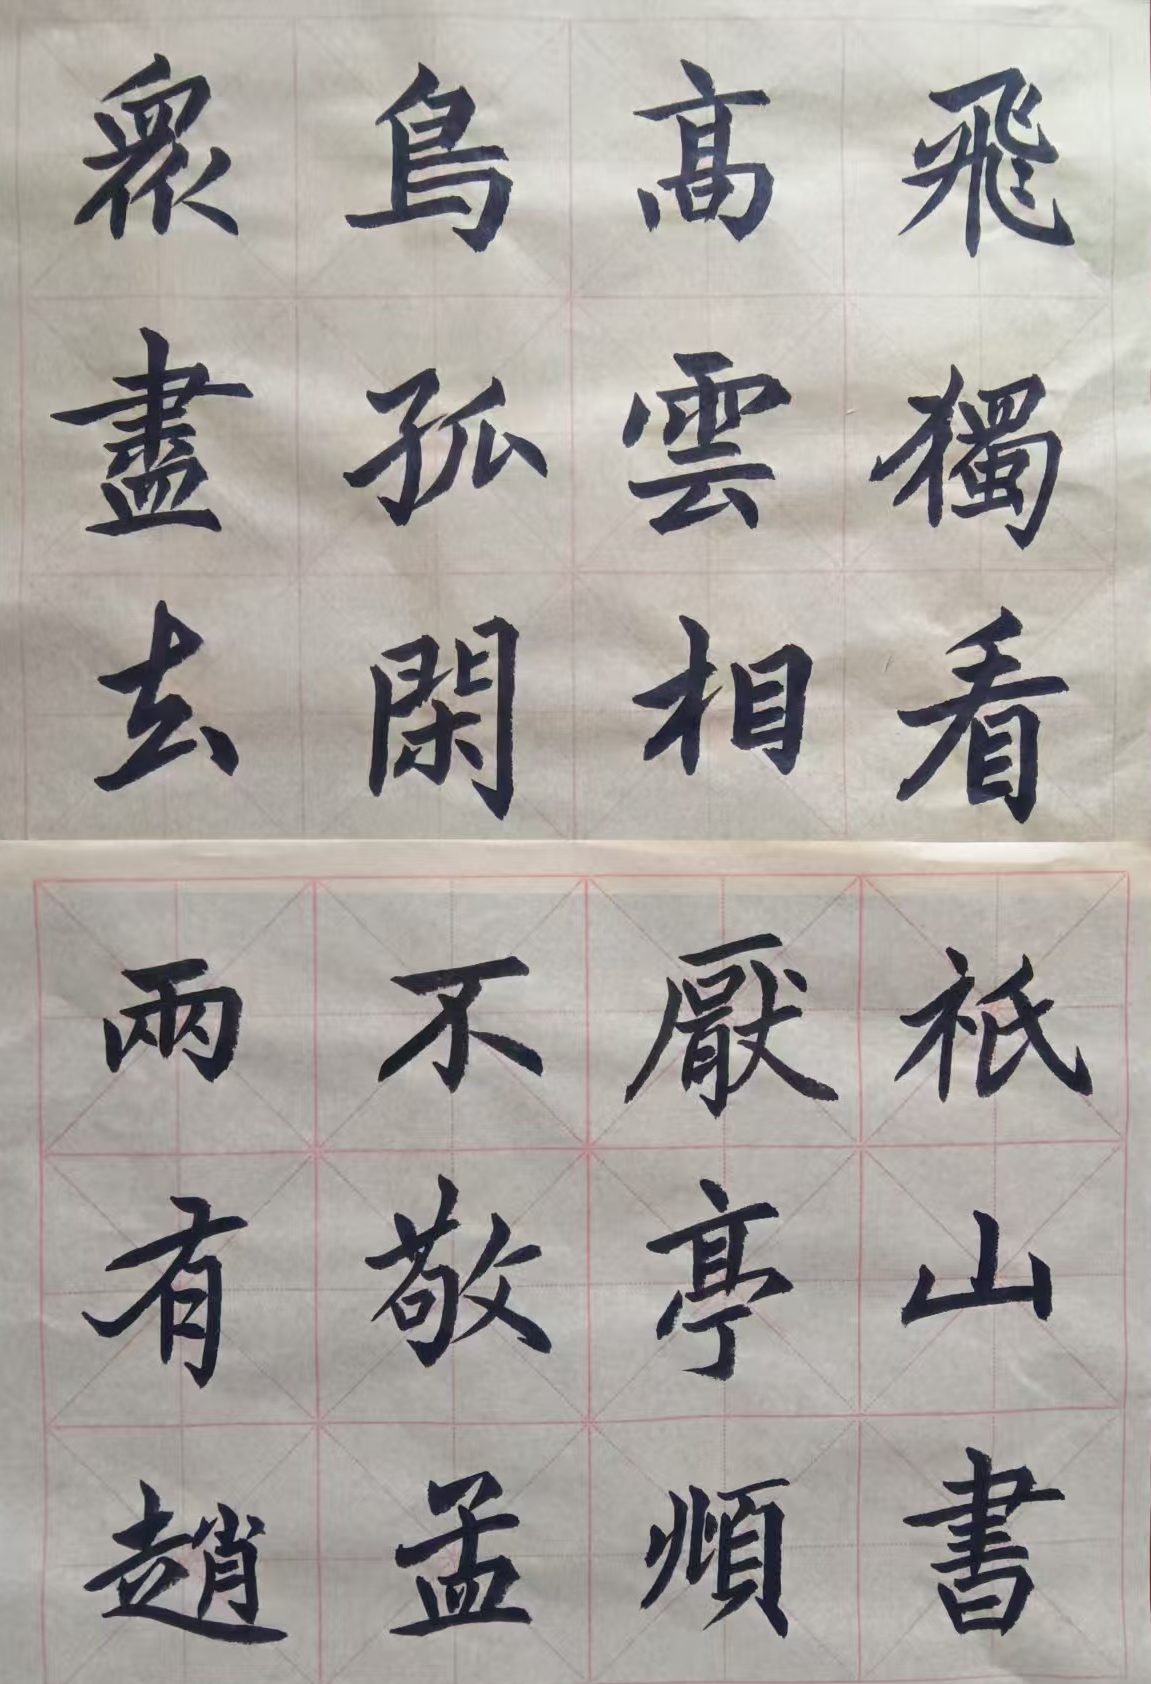 衆鳥高飛
盡孤雲獨
去閑相看
兩不厭祇
有敬亭山
趙孟頫書